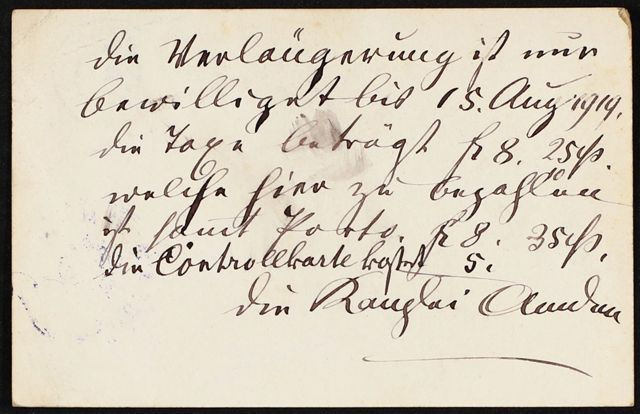 die Verlängerung ist nur
bewilliget bis 15. Aug 1919.
die Taxe beträgt fr 8. 25 cts.
welche hier zu bezahlen
ist samt Porto. fr 8. 35 cts.
die Controllkarte kostet 5.
die Kanzlei